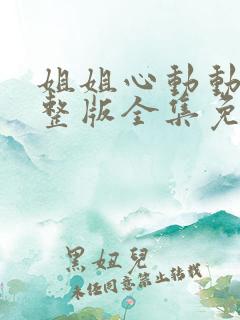 姐姐心動動
整版全集免
黑妞兒
未经同意禁止转载